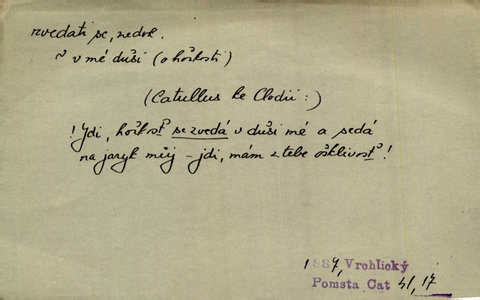 zvedati se, nedok.
~ v mé duši (o hořkosti)
(Catullus ke Clodii :)
! Jdi, hořkost se zvedá v duši mé a sedá
na jazyk můj – jdi, mám z tebe ošklivost !
1887, Vrchlický
Pomsta Cat 41, 17